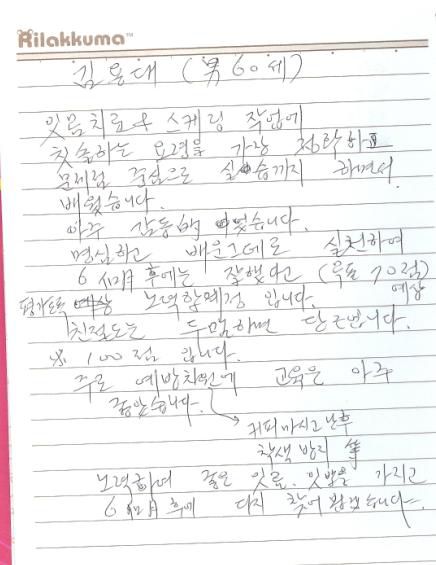 Rilakkuma™
김용대 (男 60세)
잇몸치료와 스케링 작업에
칫솔하는 요령을 가장 정확하고
문제점 중심으로 실습까지 하면서
배웠습니다.
아주 감동먹었습니다.
명심하고 배운그대로 실천하여
6個月 후에는 잘했다고 (목표 70점)
평가토록 노력할예정 입니다. 예상
친절도는 두말하면 당근입니다.
※ 100점 입니다.
주로 예방차원에 교육은 아주
좋았습니다.
커피마시고 난후
착색 방지 等
노력하여 좋은 잇몸, 잇빨을 가지고
6個月 후에 다시 찾아 뵙겠습니다.